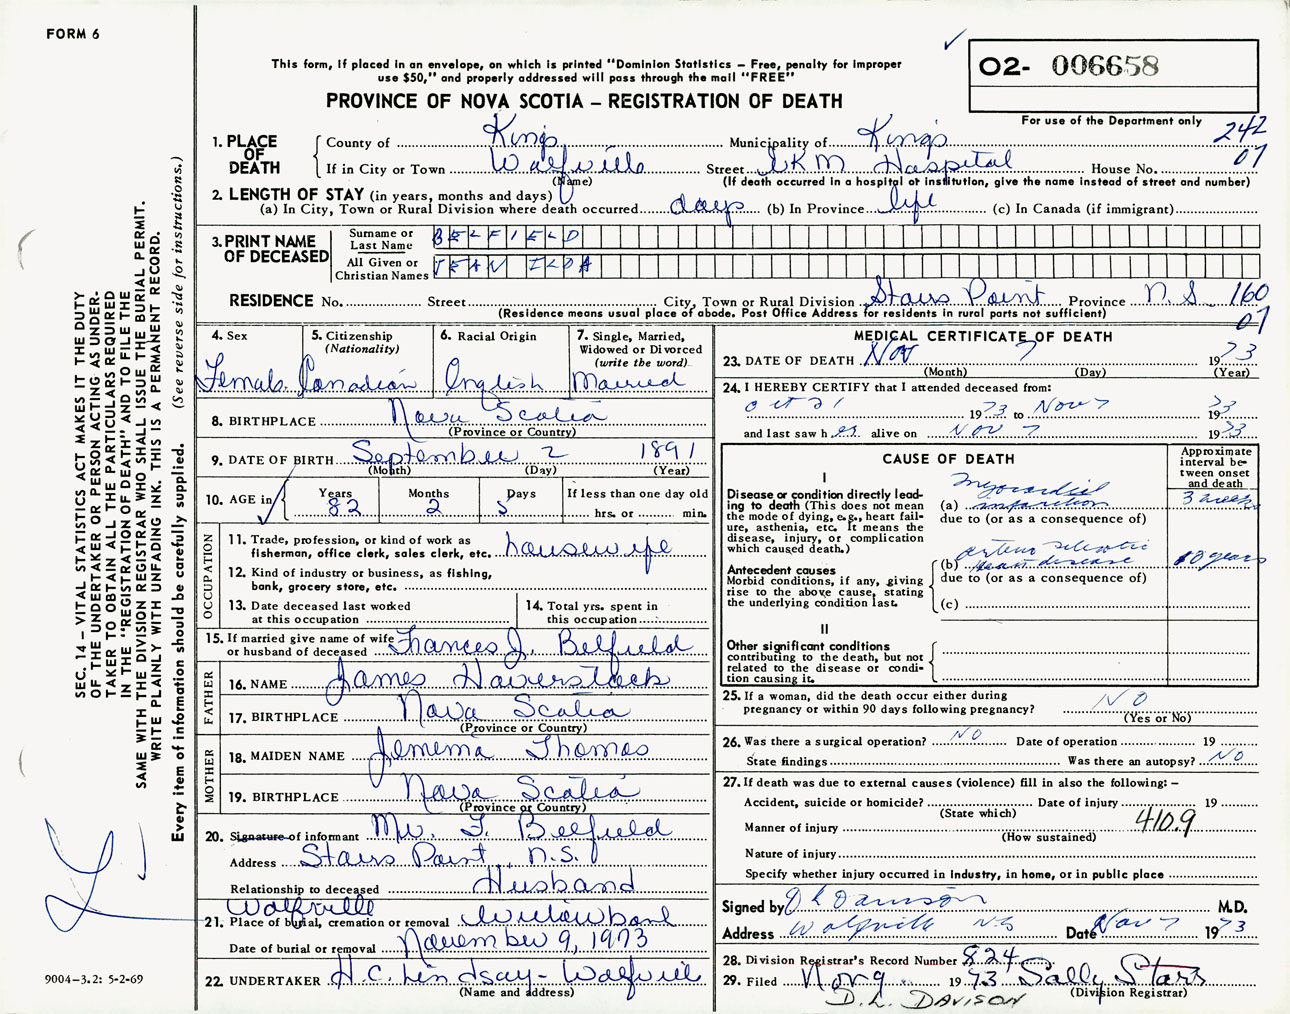 FORM 6
✓
O2- 006658
This form, if placed in an envelope, on which is printed "Dominion Statistics — Free, penalty for improper
use $50," and properly addressed will pass through the mail "FREE"
PROVINCE OF NOVA SCOTIA — REGISTRATION OF DEATH
For use of the Department only
242
07
1. PLACE OF DEATH
County of Kings Municipality of Kings
If in City or Town Wolfville Street E K M Hospital House No.
(Name) (If death occurred in a hospital or institution, give the name instead of street and number)
2. LENGTH OF STAY (in years, months and days)
(a) In City, Town or Rural Division where death occurred days (b) In Province life (c) In Canada (if immigrant)
3. PRINT NAME OF DECEASED
Surname or Last Name BELFIELD
All Given or Christian Names
RESIDENCE No. Street City, Town or Rural Division Starrs Point Province N.S. 160
(Residence means usual place of abode. Post Office Address for residents in rural parts not sufficient) 07
4. Sex 5. Citizenship (Nationality) 6. Racial Origin 7. Single, Married, Widowed or Divorced (write the word)
Female Canadian English Married
8. BIRTHPLACE Nova Scotia
(Province or Country)
9. DATE OF BIRTH September 2 1891
(Month) (Day) (Year)
10. AGE in Years Months Days If less than one day old
82 2 5 hrs. or min.
OCCUPATION
11. Trade, profession, or kind of work as
fisherman, office clerk, sales clerk, etc. housewife
12. Kind of industry or business, as fishing,
bank, grocery store, etc.
13. Date deceased last worked at this occupation 14. Total yrs. spent in this occupation
15. If married give name of wife
or husband of deceased Frances J. Belfield
FATHER
16. NAME James Haverstock
17. BIRTHPLACE Nova Scotia
(Province or Country)
MOTHER
18. MAIDEN NAME Jemema Thomas
19. BIRTHPLACE Nova Scotia
(Province or Country)
20. Signature of informant Mr. F. Belfield
Address Starrs Point, N.S.
Relationship to deceased Husband
Wolfville
21. Place of burial, cremation or removal Willowbank
Date of burial or removal November 9, 1973
22. UNDERTAKER H.C. Lindsay - Wolfville
(Name and address)
MEDICAL CERTIFICATE OF DEATH
23. DATE OF DEATH Nov 7 1973
(Month) (Day) (Year)
24. I HEREBY CERTIFY that I attended deceased from:
Oct 21 1973 to Nov 7 1973
and last saw her alive on Nov 7 1973
CAUSE OF DEATH
Approximate interval between onset and death
I
Disease or condition directly lead-
ing to death (This does not mean
the mode of dying, e.g., heart fail-
ure, asthenia, etc. It means the
disease, injury, or complication
which caused death.)
(a) myocardial infarction 3 weeks
due to (or as a consequence of)
Antecedent causes
Morbid conditions, if any, giving
rise to the above cause, stating
the underlying condition last.
(b) arterio sclerotic heart disease 10 years
due to (or as a consequence of)
(c)
II
Other significant conditions
contributing to the death, but not
related to the disease or condi-
tion causing it.
25. If a woman, did the death occur either during
pregnancy or within 90 days following pregnancy? NO
(Yes or No)
26. Was there a surgical operation? NO Date of operation 19
State findings Was there an autopsy? NO
27. If death was due to external causes (violence) fill in also the following: —
Accident, suicide or homicide? Date of injury 19
(State which)
Manner of injury 410.9
(How sustained)
Nature of injury
Specify whether injury occurred in industry, in home, or in public place
Signed by D L Davison M.D.
Address Wolfville NS Date Nov 7 1973
28. Division Registrar's Record Number 824
29. Filed Nov 9 1973 Sally Starr
(Division Registrar)
D. L. DAVISON
SEC. 14 — VITAL STATISTICS ACT MAKES IT THE DUTY
OF THE UNDERTAKER OR PERSON ACTING AS UNDER-
TAKER TO OBTAIN ALL THE PARTICULARS REQUIRED
IN THE "REGISTRATION OF DEATH" AND TO FILE THE
SAME WITH THE DIVISION REGISTRAR WHO SHALL ISSUE THE BURIAL PERMIT.
WRITE PLAINLY WITH UNFADING INK. THIS IS A PERMANENT RECORD.
Every item of information should be carefully supplied. (See reverse side for instructions.)
9004-3.2: 5-2-69